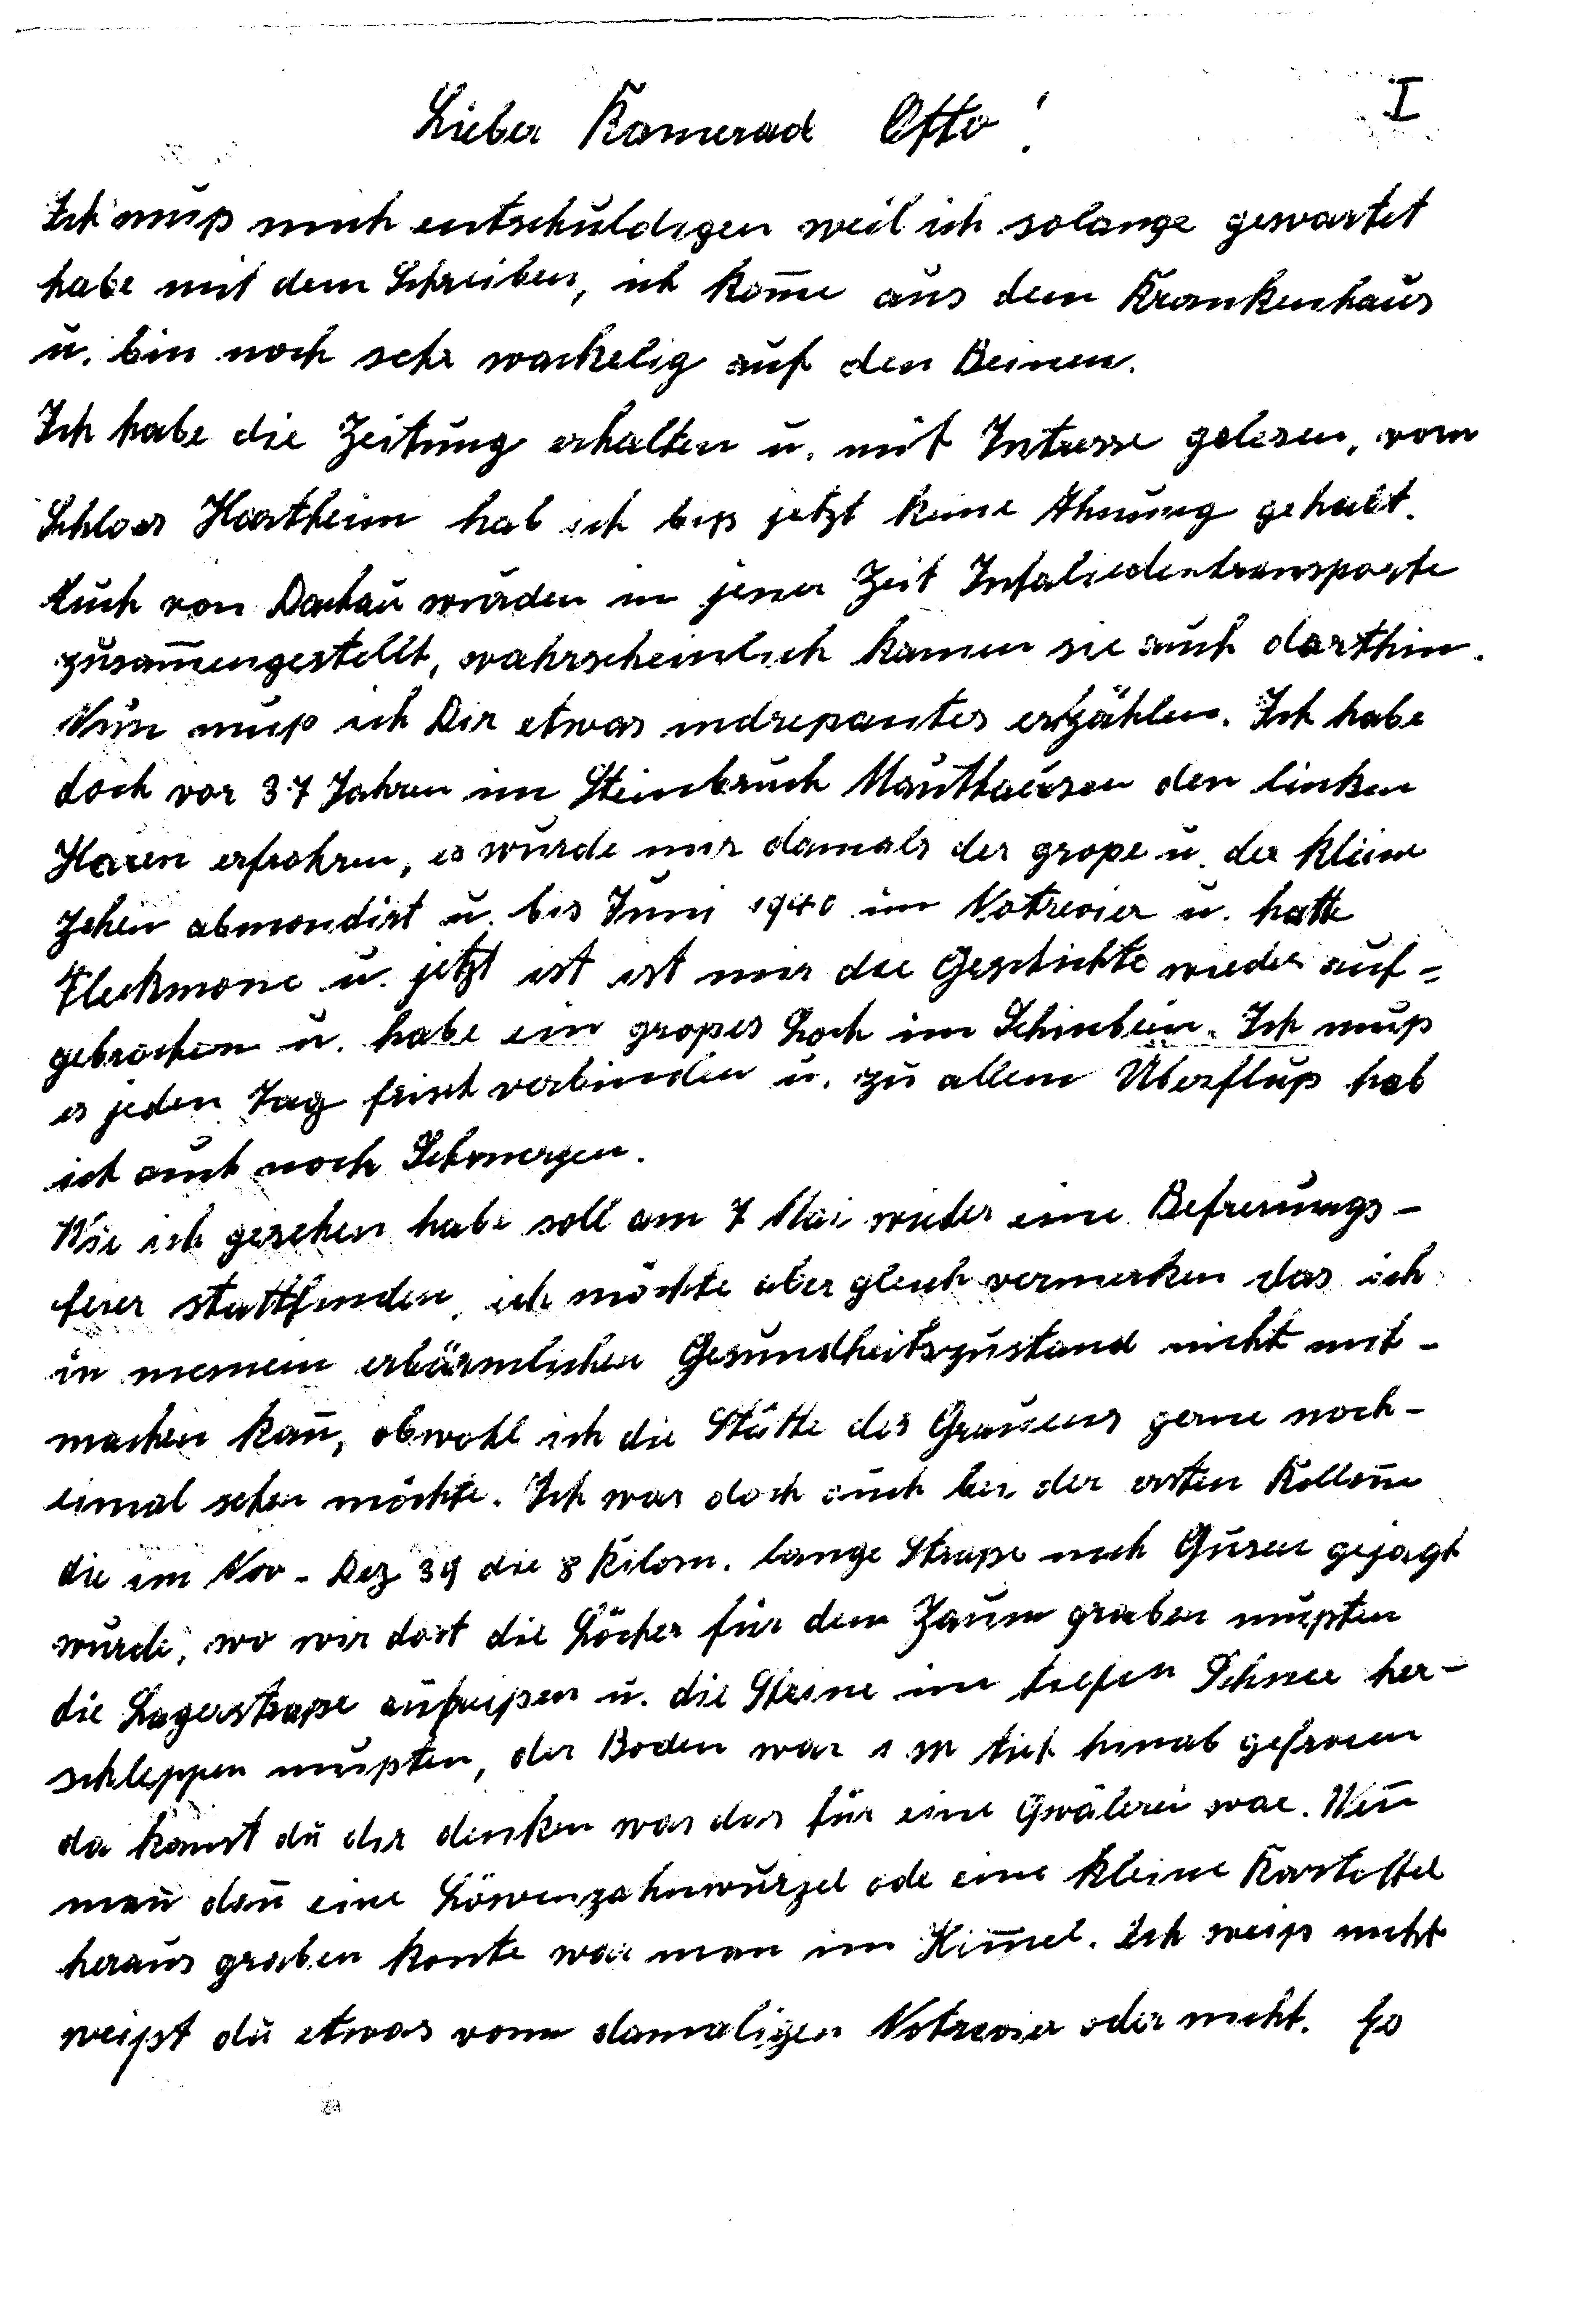 I
Lieber Kamerad Otto!
Ich muß mich entschuldigen weil ich solange gewartet
habe mit dem Schreiben, ich kom̄e aus dem Krankenhaus
u. bin noch sehr wackelig auf den Beinen.
Ich habe die Zeitung erhalten u. mit Intresse gelesen, vom
Schloss Hartheim hab ich biß jetzt keine Ahnung gehabt.
Auch von Dachau wurden in jener Zeit Infaliedentransporte
zusam̄engestellt, wahrscheinlich kamen sie auch dorthin.
Nun muß ich Dir etwas erzählen. Ich habe
doch vor 37 Jahren im Steinbruch Mauthausen den linken
Haxen erfrohren, es wurde mir damals der große u. der kleine
Zehen abmondirt u. bis Juni 1940 im Notrevier u. hatte
Fleckmone u. jetzt ist ist mir die Geschichte wieder auf=
gebrochen u. habe ein großes Loch im Schinbein. Ich muß
es jeden Tag frisch verbinden u. zu allem Überfluß hab
ich auch noch Schmerzen.
Wie ich gesehen habe soll am 7 Mai wieder eine Befreiungs-
feier stattfinden, ich möchte aber gleich vermerken das ich
in meinem erbärmlichen Gesundheitszustand nicht mit-
machen kan̄, obwohl ich die Stätte des Grauens gerne noch-
einmal sehen möchte. Ich war doch auch bei der ersten Kollon̄e
die im Nov - Dez 39 die 8 Kilom. lange Straße nach Gusen gejagt
wurde, wo wir dort die Löcher für den Zaun graben mußten
die Lagerstraße aufreißen u. die Steine im tiefen Schnee her-
schleppen mußten, der Boden war 1 m tief hinab gefroren
da kanst du dir denken was das für eine Gwälerei war. Wen̄
man dan̄ eine Löwenzahnwurzel ode eine kleine Kartoffel
heraus graben konte war man im Him̄el. Ich weiß nicht
weißt du etwas vom damaligen Notrevier oder nicht. Es